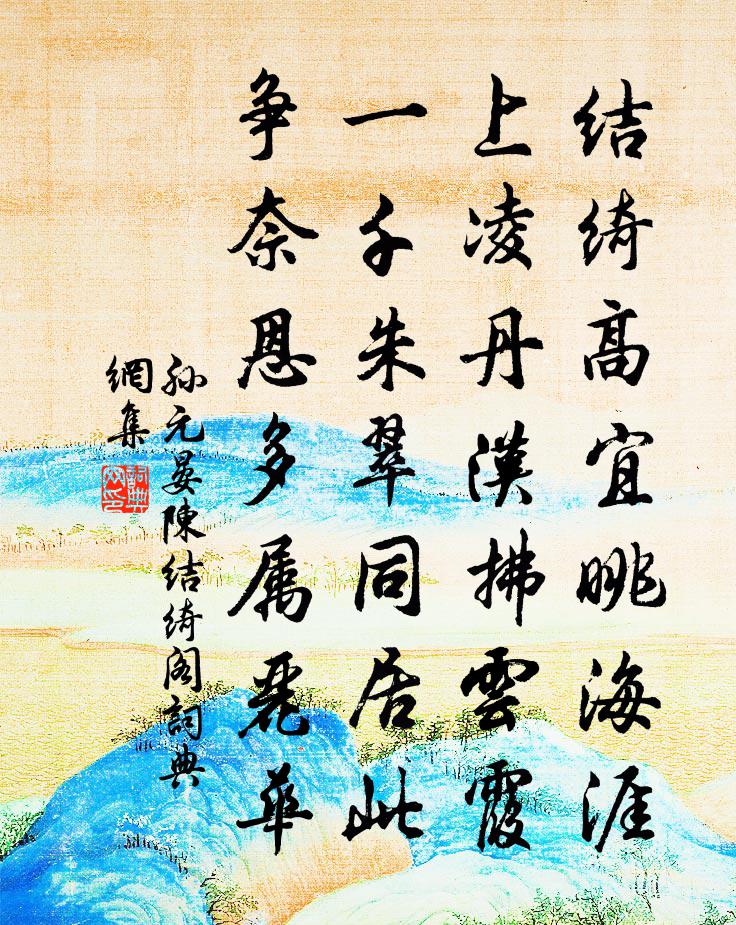 结绮高宜眺海涯
上凌丹漢拂雲霞
一千朱翠同居此
争奈恩多属麗華
孙元晏陳结绮阁詞典
網集